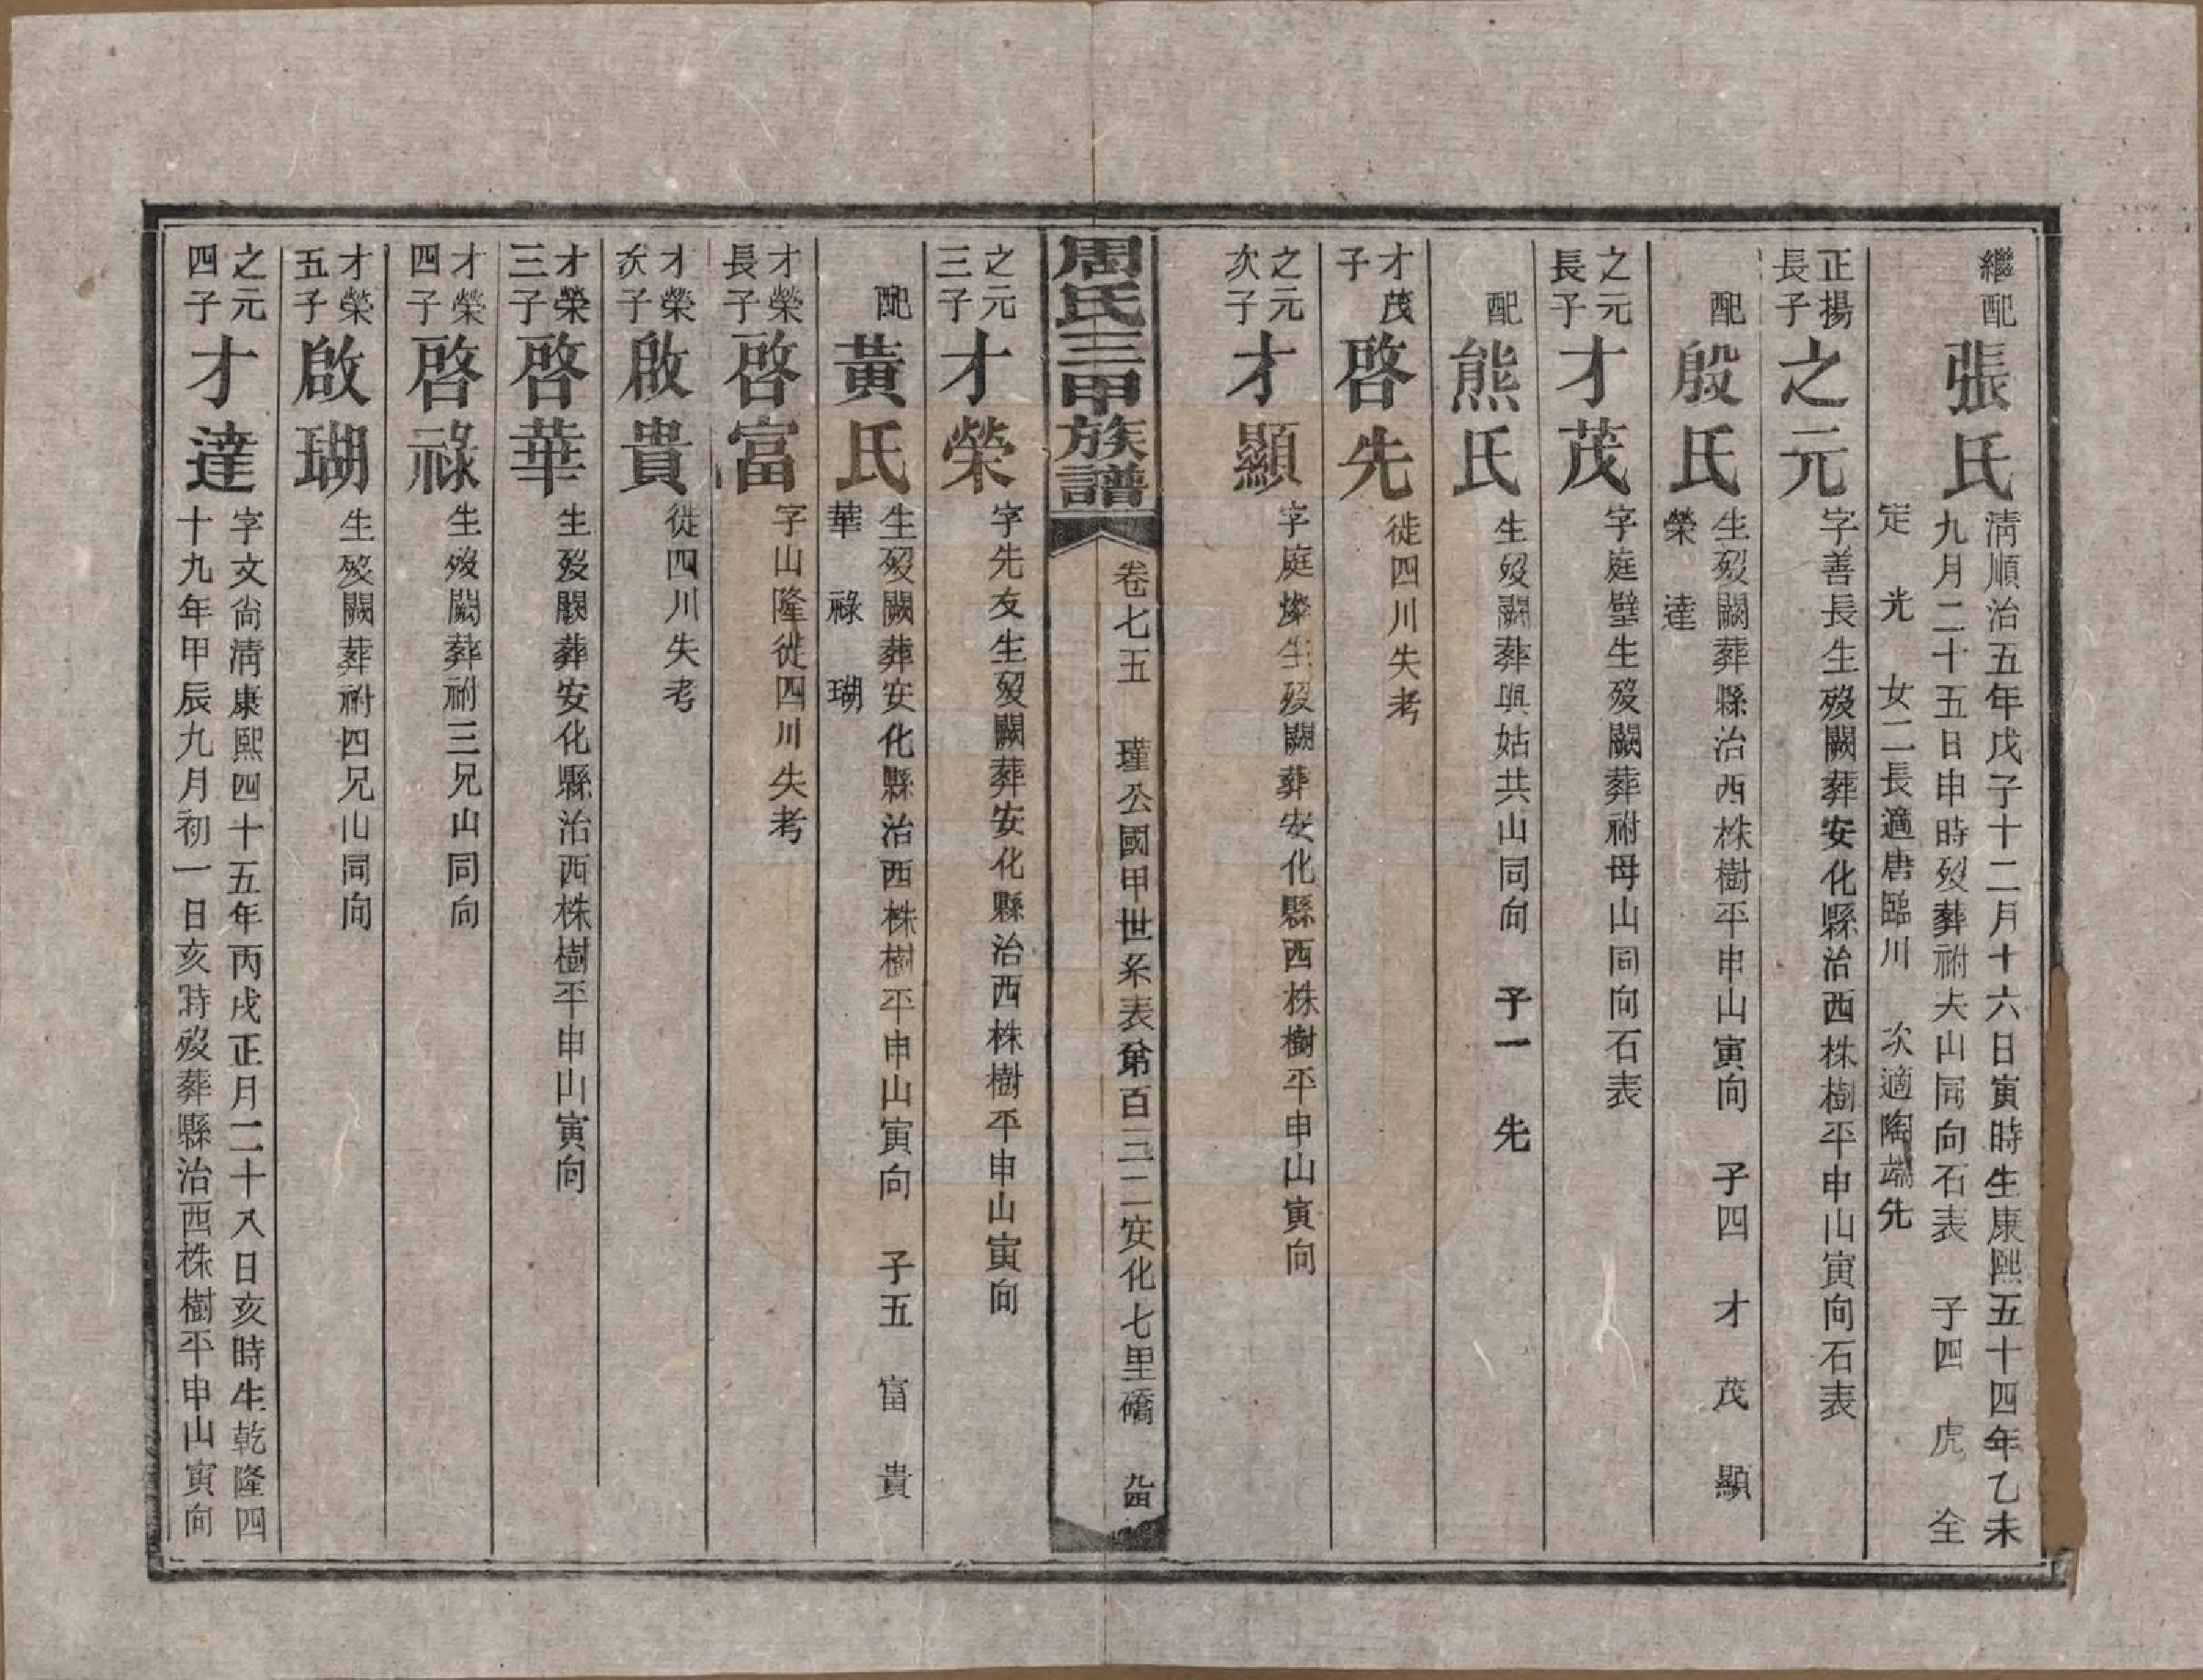 繼配
張氏
淸順治五年戊子十二月十六日寅時生康熙五十四年乙未
九月二十五日申時歿葬祔夫山同向石表 子四 虎 全
定 光 女二長適唐臨川 次適陶端先
正揚
長子
之元
字善長生歿闕葬安化縣治西株樹平申山寅向石表
配
殷氏
生歿闕葬縣治西株樹平申山寅向 子四 才 茂 顯
榮 達
之元
長子
才茂
字庭壁生歿闕葬祔母山同向石表
配
熊氏
生歿闕葬與姑共山同向 子一 先
才茂
子
啓先
徙四川失考
之元
次子
才顯
字庭燦生歿闕葬安化縣西株樹平申山寅向
周氏三甲族譜
卷七五 瑾公國甲世系表第百三二安化七里礄 九四
之元
三子
才榮
字先友生歿闕葬安化縣治西株樹平申山寅向
配
黃氏
生歿闕葬安化縣治西株樹平申山寅向 子五 富 貴
華 祿 瑚
才榮
長子
啓富
字山隆徙四川失考
才榮
次子
啟貴
徙四川失考
才榮
三子
啓華
生歿闕葬安化縣治西株樹平申山寅向
才榮
四子
啓祿
生歿闕葬祔三兄山同向
才榮
五子
啟瑚
生歿闕葬祔四兄山同向
之元
四子
才達
字文尙淸康熙四十五年丙戌正月二十八日亥時生乾隆四
十九年甲辰九月初一日亥時歿葬縣治西株樹平申山寅向